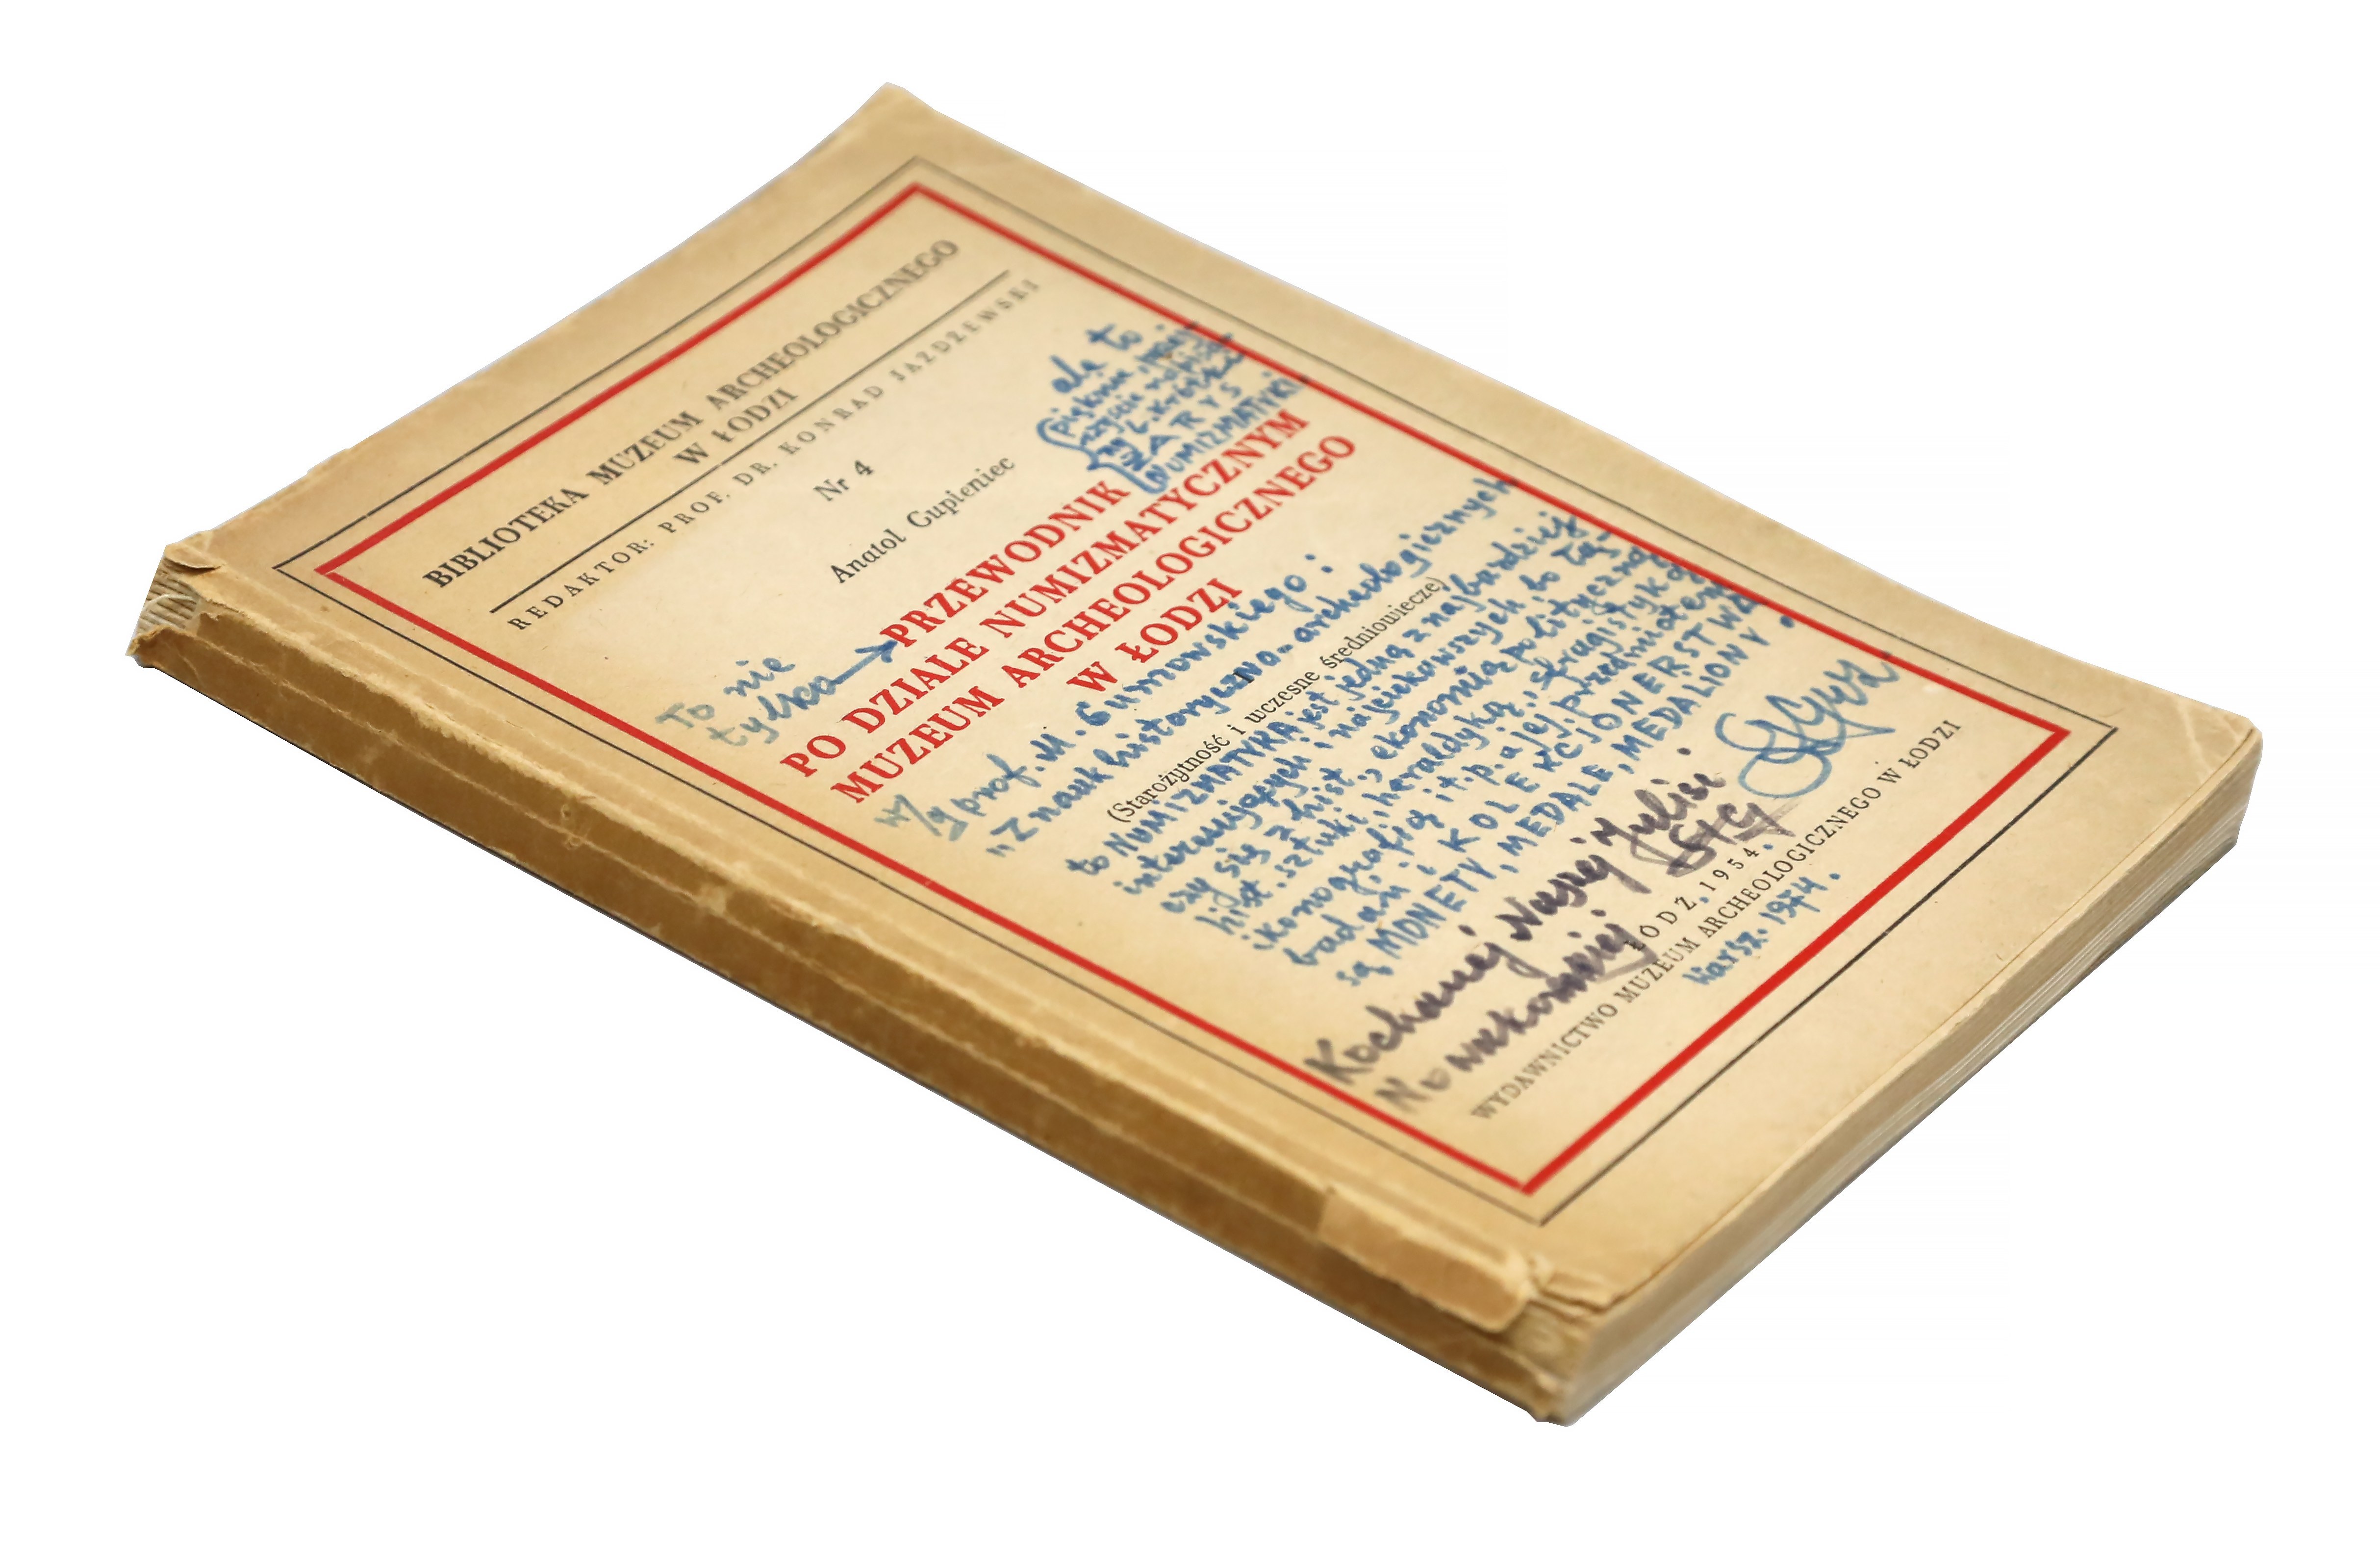 BIBLIOTEKA MUZEUM ARCHEOLOGICZNEGO
W ŁODZI
REDAKTOR: PROF. DR. KONRAD JAŻDŻEWSKI
Nr 4
Anatol Gupieniec
ale to
pięknie,
ZARYS
NUMIZMATYKI
To nie
tylko
PRZEWODNIK
PO DZIALE NUMIZMATYCZNYM
MUZEUM ARCHEOLOGICZNEGO
W ŁODZI
w/g prof. M. Gumowskiego:
"Z nauk historyczno-archeologicznych
(Starożytność i wczesne średniowiecze)
to NUMIZMATYKA jest jedną z najbardziej
interesujących i najciekawszych, bo łą-
czy się z hist., ekonomią polityczną,
hist. sztuki, heraldyką, sfragistyką,
ikonografią i t.p. a jej przedmiotem
badań i KOLEKCJONERSTWA
są MONETY, MEDALE, MEDALIONY.
Kochanej Naszej Julisi
Nowakowskiej
ŁÓDŹ, 1954.
WYDAWNICTWO MUZEUM ARCHEOLOGICZNEGO W ŁODZI
Warsz. 1974.